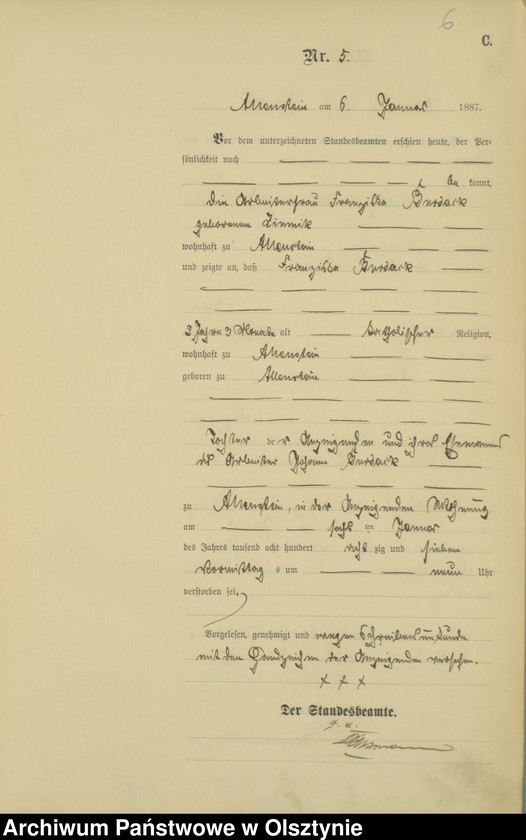 6
C.
Nr. 5.
Allenstein am 6. Januar 1887.
Vor dem unterzeichneten Standesbeamten erschien heute, der Per-
sönlichkeit nach
be kannt,
die Arbeiterfrau Franziska
geborenen
wohnhaft zu Allenstein
und zeigte an, daß Franziska
2 Jahre 3 Monate alt katholischer Religion,
wohnhaft zu Allenstein
geboren zu Allenstein
Tochter der Anzeigenden und ihres Ehemannes
des Arbeiter Johann
zu Allenstein, in der Anzeigenden Wohnung
am sechs ten Januar
des Jahres tausend acht hundert acht zig und sieben
Vormittag s um neun Uhr
verstorben sei.
Vorgelesen, genehmigt und wegen Schreibensunkunde
mit den Handzeichen der Anzeigenden versehen.
+ + +
Der Standesbeamte.
Archiwum Państwowe w Olsztynie